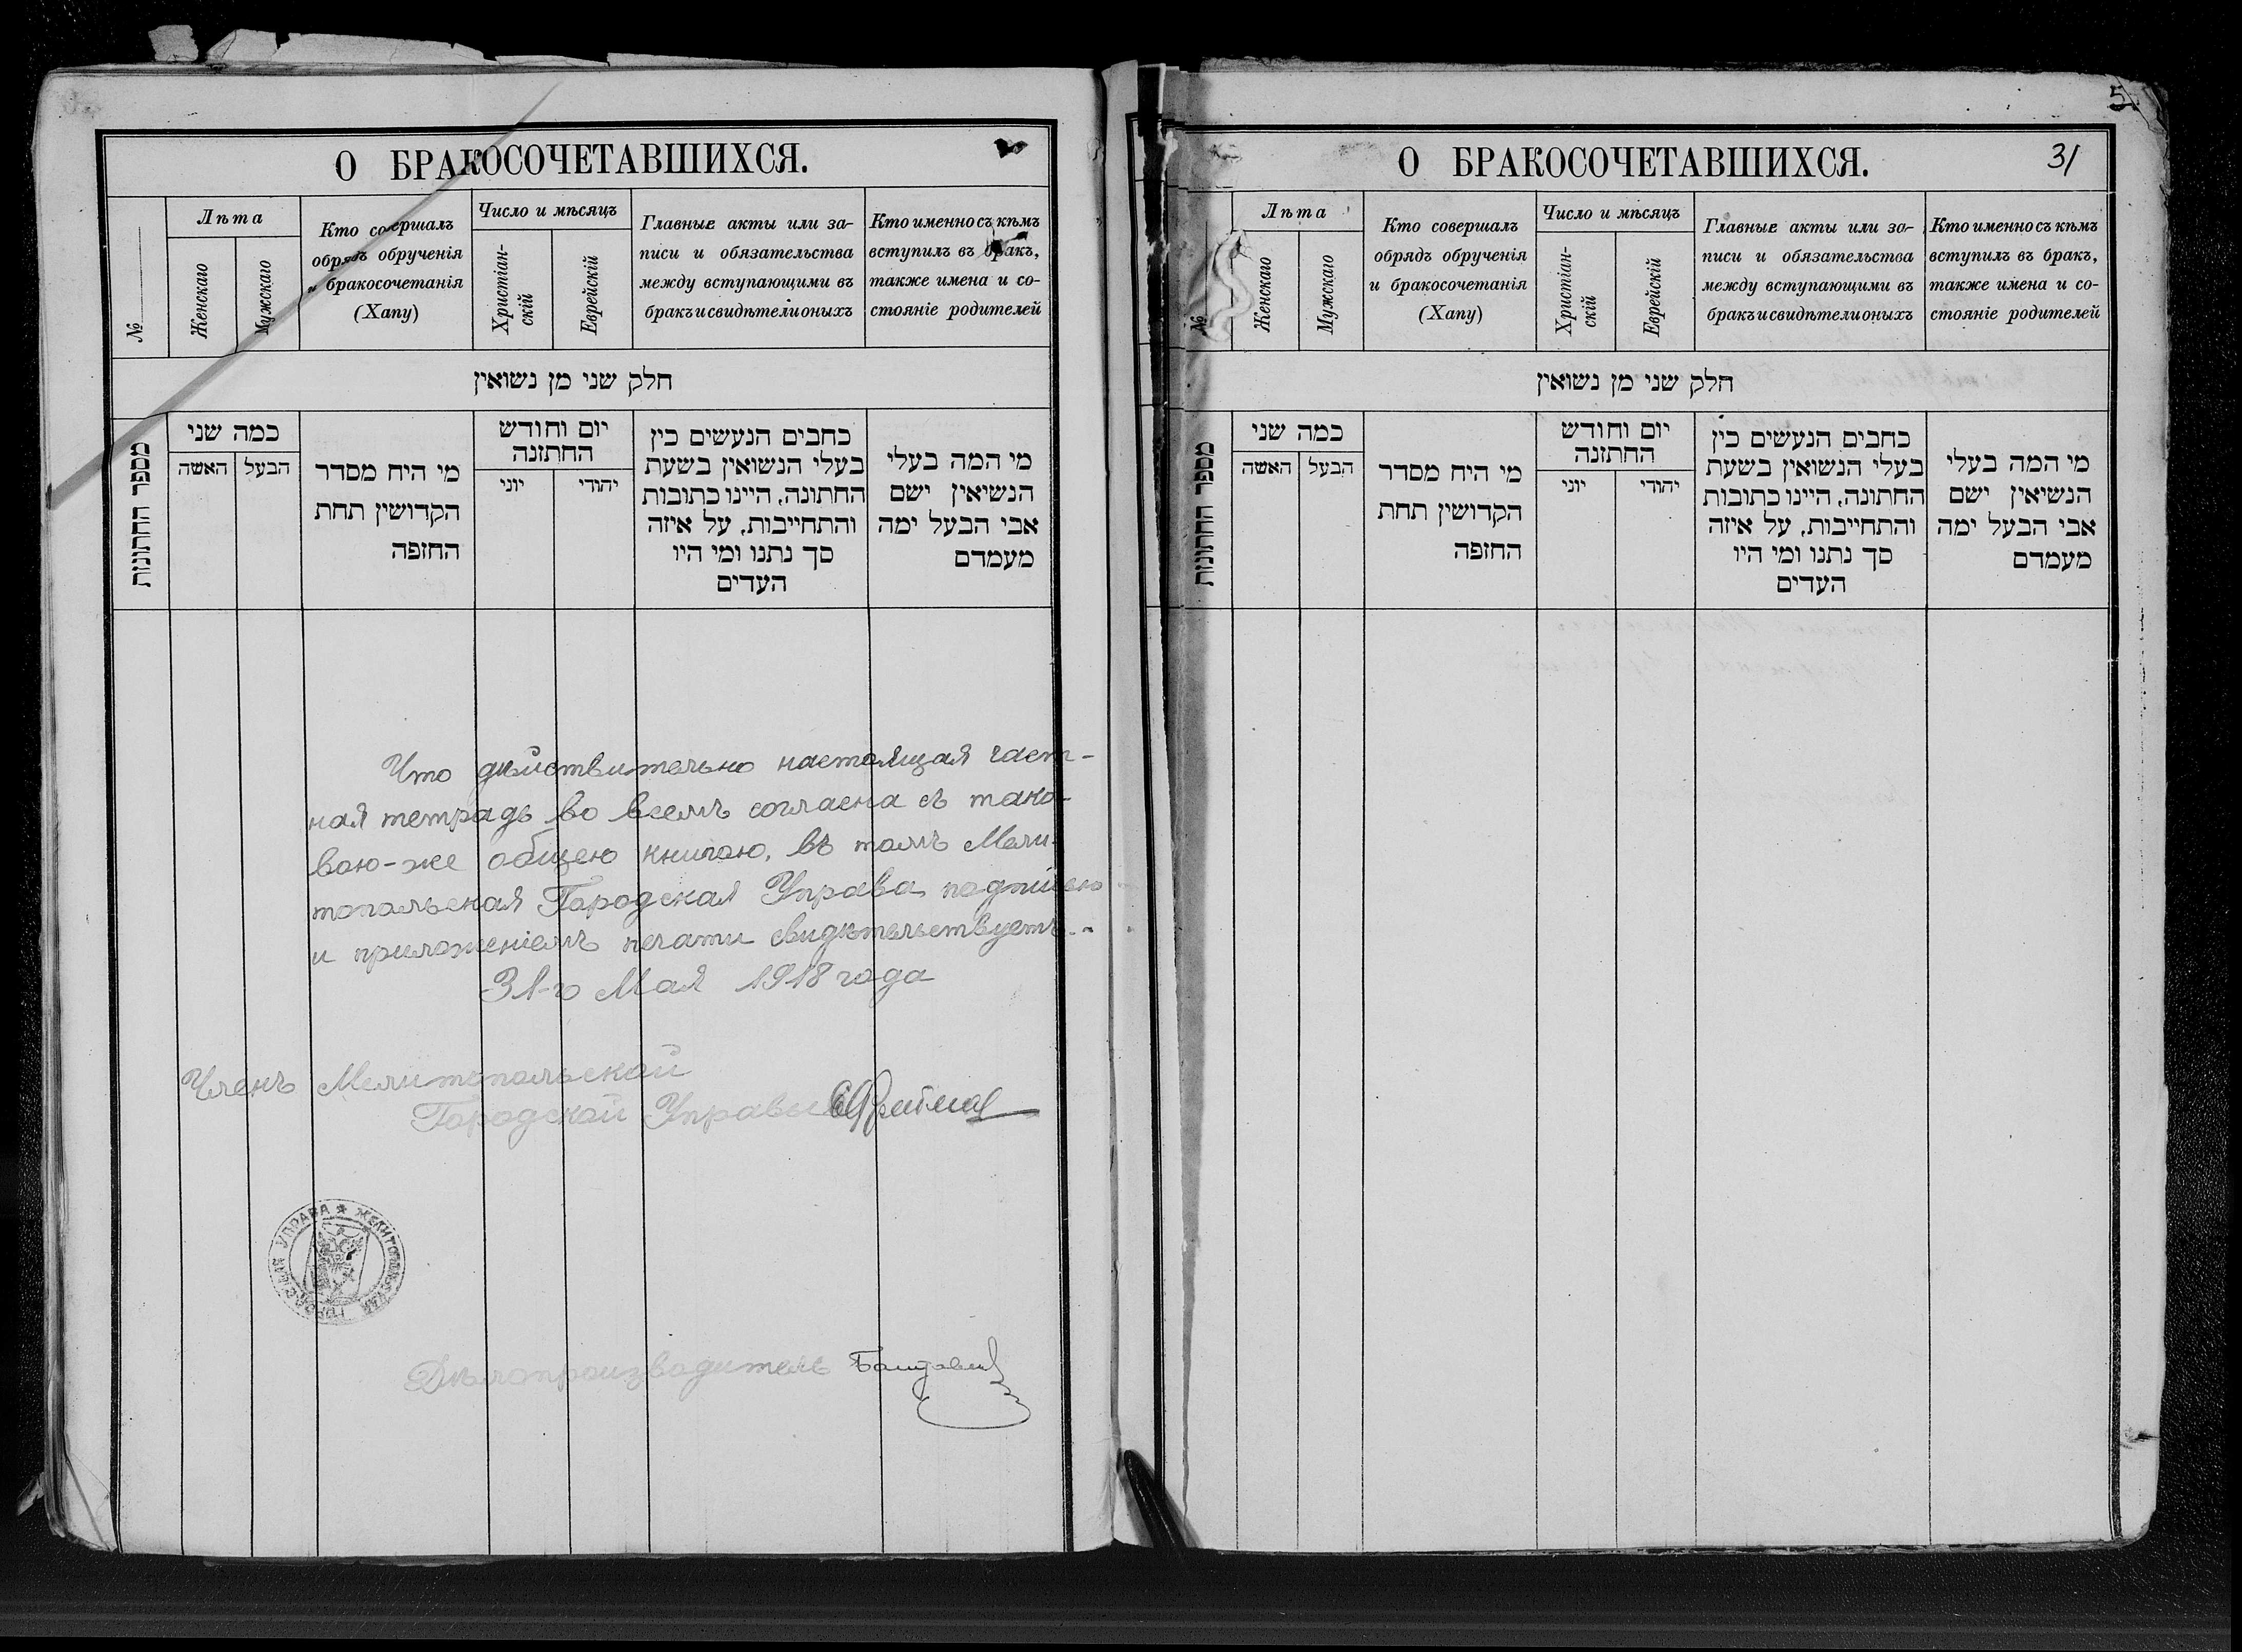 О БРАКОСОЧЕТАВШИХСЯ.
№
Лѣта
Женскаго
Мужскаго
Кто совершалъ
обрядъ обрученія
и бракосочетанія
(Хапу)
Число и мѣсяцъ
Христіан-
скій
Еврейскій
Главные акты или за-
писи и обязательства
между вступающими въ
бракъ и свидѣтели оныхъ
Кто именно съ кѣмъ
вступилъ въ бракъ,
также имена и со-
стояніе родителей
חלק שני מן נשואין
מספר החתונות
כמה שני
האשה
הבעל
מי היח מסדר
הקדושין תחת
החזפה
יום וחודש
החתזנה
יוני
יהודי
כחבים הנעשים כין
בעלי הנשואין בשעת
החתונה, היינו כתובות
והתחייבות, על איזה
סך נתנו ומי היו
העדים
מי המה בעלי
הנשיאין ישם
אבי הבעל ימה
מעמדם
Что дѣйствительно настоящая част-
ная тетрадь во всемъ согласна съ тако-
вою-же общею книгою, въ томъ Мели-
топольская Городская Управа подписью
и приложеніемъ печати свидѣтельствуетъ.
31-го Мая 1918 года
Членъ Мелитопольской
Городской Управы
ГОРОДСКАЯ УПРАВА ★ МЕЛИТОПОЛЬСКАЯ
Дѣлопроизводитель
5
О БРАКОСОЧЕТАВШИХСЯ.
31
№
Лѣта
Женскаго
Мужскаго
Кто совершалъ
обрядъ обрученія
и бракосочетанія
(Хапу)
Число и мѣсяцъ
Христіан-
скій
Еврейскій
Главные акты или за-
писи и обязательства
между вступающими въ
бракъ и свидѣтели оныхъ
Кто именно съ кѣмъ
вступилъ въ бракъ,
также имена и со-
стояніе родителей
חלק שני מן נשואין
מספר החתונות
כמה שני
האשה
הבעל
מי היח מסדר
הקדושין תחת
החזפה
יום וחודש
החתזנה
יוני
יהודי
כחבים הנעשים כין
בעלי הנשואין בשעת
החתונה, היינו כתובות
והתחייבות, על איזה
סך נתנו ומי היו
העדים
מי המה בעלי
הנשיאין ישם
אבי הבעל ימה
מעמדם